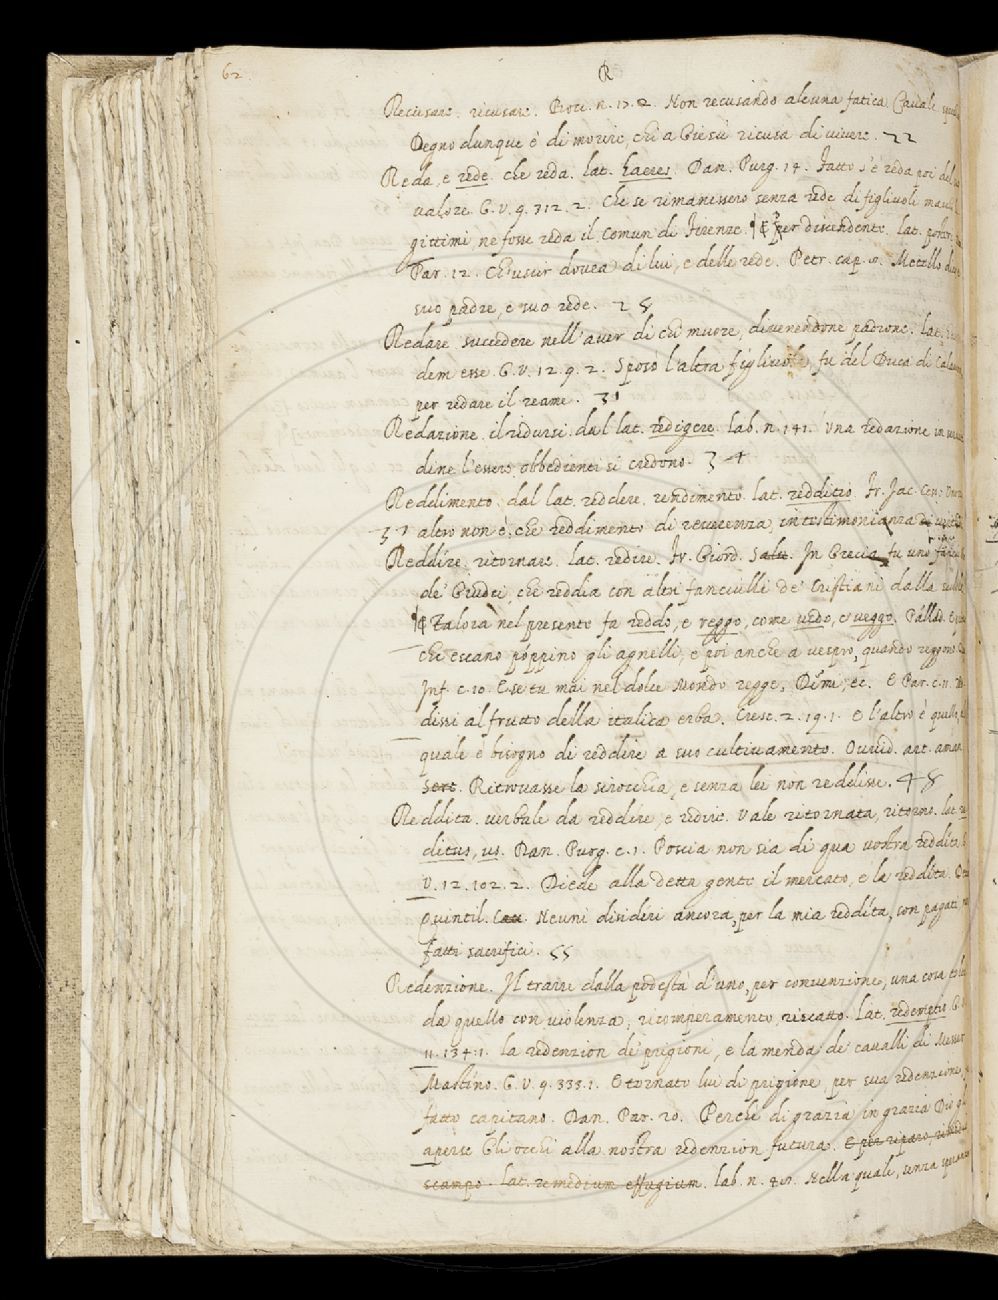 62
R
Recusare. ricusare. Proem. n. 17. 2. Non recusando alcuna fatica. Caval.
Degno dunque è di morire, chi a Giesù ricusa di vivere. 22
Reda, e rede. che reda. lat. haeres. Dan. Purg. 14. Fatto s'è reda poi del
valore. G. V. 9. 312. 2. Che se rimanessero senza rede di figliuoli
gittimi ne fosse reda il Comun di Firenze. per discendente. lat.
Par. 12. Ch'uscir dovea di lui, e delle rede. Petr. cap. Metello
suo padre, e suo rede. 28
Redare. succedere nell'aver di chi muore, divenendone padrone. lat.
dem esse. G. V. 12. 9. 2. Sposò l'altra figliuola, fu del Duca di
per redare il reame. 31
Redazione. il redursi. dal lat. redigere. lab. n. 141. Una redazione in
dine l'essere obbedienti si credono. 34
Reddimento. dal lat. reddere. rendimento. lat. redditio. Fr. Jac. Cess.
37 altro non è, che reddimento di reverenza in testimonianza
Reddire. ritornare. lat. redire. Fr. Giord. Salu. In Grecia fu uno
de' Giudei, che reddia con altri fanciulli de' Cristiani dalla
Talora nel presente fa reddo, e reggo, come vedo, e veggo. Pallad.
che escano poppino gli agnelli, e poi anche a vespro, quando reggono.
Inf. c. 10. E se tu mai nel dolce Mondo regge, Dimi, &c. E Par. c. 11.
dissi al frutto della italica erba. Cresc. 2. 19. 1. E l'altro è quello,
quale è bisogno di reddire a suo cultivamento. Ouvid. art. aman.
Ritrovasse la sirocchia, e senza lei non reddisse. 48
Reddita. verbale da reddire, e redire. Vale ritornata, ritorno. lat.
ditus, us. Dan. Purg. c. 1. Poscia non sia di qua vostra reddita.
V. 12. 102. 2. Diede alla detta gente il mercato, e la reddita.
Quintil. Neuni disideri ancora, per la mia reddita, son pagati,
fatti sacrifici. 55
Redenzione. Il trarre dalla podestà d'uno, per convenzione, una cosa
da quello con violenza, ricomperamento, riscatto. Lat. redemptio. G.
11. 134. 1. la redenzion de' prigioni, e la menda de' cavalli di Messer
Mastino. G. V. 9. 333. 1. E tornato lui di prigione, per sua redenzione,
fatto capitano. Dan. Par. 20. Perchè di grazia in grazia Dio gli
aperse Gli occhi alla nostra redenzion futura. E per riparo, rimedio
scampo. lat. remedium effugium. lab. n. Nella quale, senza